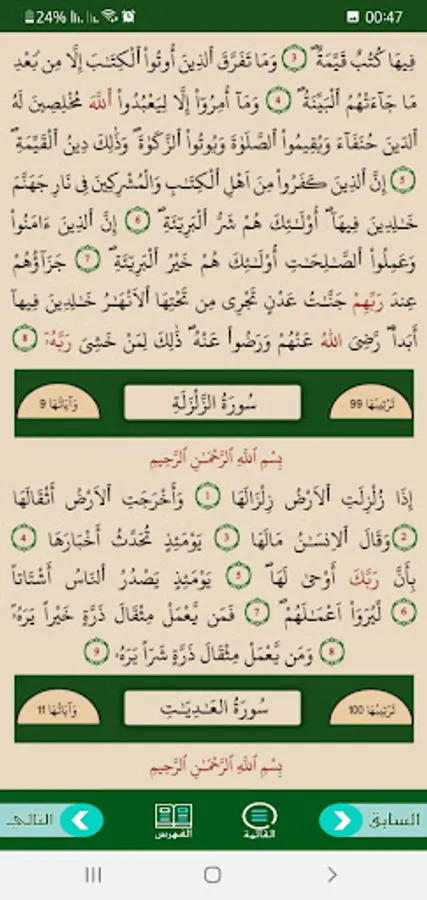 24% 00:47
فِيهَا كُتُبٌ قَيِّمَةٌ ۖ 3 وَمَا تَفَرَّقَ اَ۬لذِينَ أُوتُواْ اُ۬لْكِتَٰبَ إِلَّا مِنۢ بَعْدِ
مَا جَآءَتْهُمُ اُ۬لْبَيِّنَةُ ۖ 4 وَمَآ أُمِرُوٓاْ إِلَّا لِيَعْبُدُواْ اُ۬للَّهَ مُخْلِصِينَ لَهُ
اُ۬لدِّينَ حُنَفَآءَ وَيُقِيمُواْ اُ۬لصَّلَوٰةَ وَيُوتُواْ اُ۬لزَّكَوٰةَ ۖ وَذَٰلِكَ دِينُ اُ۬لْقَيِّمَةِ ۖ
5 إِنَّ اَ۬لذِينَ كَفَرُواْ مِنَ اَهْلِ اِ۬لْكِتَٰبِ وَالْمُشْرِكِينَ فِي نَارِ جَهَنَّمَ
خَٰلِدِينَ فِيهَآ ۖ أُوْلَٰٓئِكَ هُمْ شَرُّ اُ۬لْبَرِيٓـَٔةِ ۖ 6 إِنَّ اَ۬لذِينَ ءَامَنُواْ
وَعَمِلُواْ اُ۬لصَّٰلِحَٰتِ أُوْلَٰٓئِكَ هُمْ خَيْرُ اُ۬لْبَرِيٓـَٔةِ ۖ 7 جَزَآؤُهُمْ
عِندَ رَبِّهِمْ جَنَّٰتُ عَدْنٍ تَجْرِي مِن تَحْتِهَا اَ۬لَانْهَٰرُ خَٰلِدِينَ فِيهَآ
أَبَداٗ ۖ رَّضِيَ اَ۬للَّهُ عَنْهُمْ وَرَضُواْ عَنْهُ ۖ ذَٰلِكَ لِمَنْ خَشِيَ رَبَّهُۥٓ 8
تَرْتِيبُهَا 99 سُورَةُ الزَّلْزَلَةِ وَآيَاتُهَا 9
بِسْمِ اِ۬للَّهِ اِ۬لرَّحْمَٰنِ اِ۬لرَّحِيمِ
إِذَا زُلْزِلَتِ اِ۬لَارْضُ زِلْزَالَهَا 1 وَأَخْرَجَتِ اِ۬لَارْضُ أَثْقَالَهَا
2 وَقَالَ اَ۬لِانسَٰنُ مَالَهَا 3 يَوْمَئِذٍ تُحَدِّثُ أَخْبَارَهَا 4
بِأَنَّ رَبَّكَ أَوْحَىٰ لَهَا ۖ 5 يَوْمَئِذٍ يَصْدُرُ اُ۬لنَّاسُ أَشْتَاتاٗ
6 لِّيُرَوَاْ اَعْمَٰلَهُمْ ۖ 7 فَمَن يَّعْمَلْ مِثْقَالَ ذَرَّةٍ خَيْراٗ يَرَهُۥ
8 وَمَن يَّعْمَلْ مِثْقَالَ ذَرَّةٍ شَرّاٗ يَرَهُۥ 9
تَرْتِيبُهَا 100 سُورَةُ العَٰدِيَٰتِ وَآيَاتُهَا 11
بِسْمِ اِ۬للَّهِ اِ۬لرَّحْمَٰنِ اِ۬لرَّحِيمِ
السابق القائمة الفهرس التالي